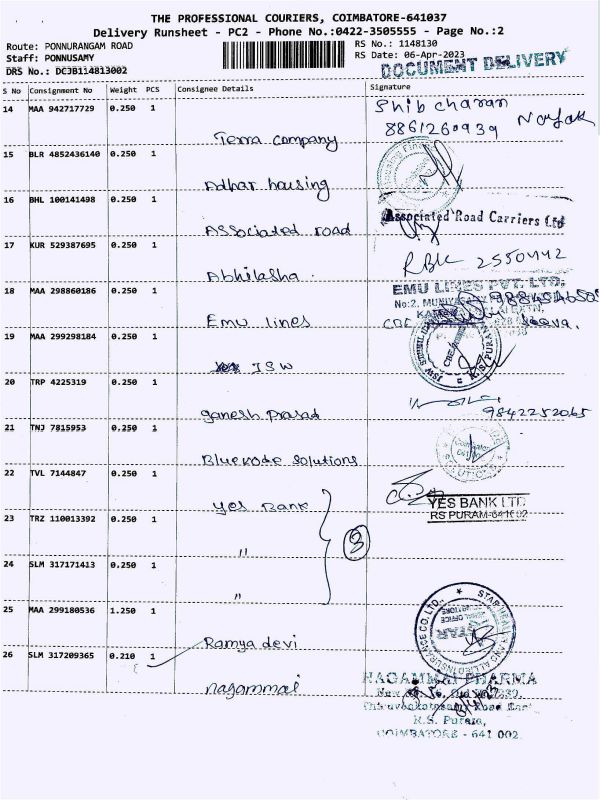 THE PROFESSIONAL COURIERS, COIMBATORE-641037
Delivery Runsheet - PC2 - Phone No.:0422-3505555 - Page No.:2
Route: PONNURANGAM ROAD
RS No.: 1148130
Staff: PONNUSAMY
RS Date: 06-Apr-2023
DRS No.: DCJB114813002
DOCUMENT DELIVERY
S No Consignment No Weight PCS Consignee Details Signature
14 MAA 942717729 0.250 1
Shib charan
8861260939 Nayak
Terra company
15 BLR 4852436140 0.250 1
Adhar housing
16 BHL 100141498 0.250 1
Associated road
Associated Road Carriers Ltd
17 KUR 529387695 0.250 1
Abhilasha.
RBK 2550442
18 MAA 298860186 0.250 1
Emu lines
EMU LINES PVT. LTD.
No:2,
CBE
19 MAA 299298184 0.250 1
JSW
R.S. PURAM
20 TRP 4225319 0.250 1
ganesh prasad
9842252065
21 TNJ 7815953 0.250 1
Bluekode solutions
22 TVL 7144847 0.250 1
Yes Bank
YES BANK LTD
RS PURAM-641002
23 TRZ 110013392 0.250 1
"
3
24 SLM 317171413 0.250 1
"
25 MAA 299180536 1.250 1
Ramya devi
STAR HEALTH AND ALLIED INSURANCE CO. LTD.
26 SLM 317209365 0.210 1
nagammai
NAGAMMAI PHARMA
Thiruvenkatasamy Road East
R.S. Puram,
COIMBATORE - 641 002.